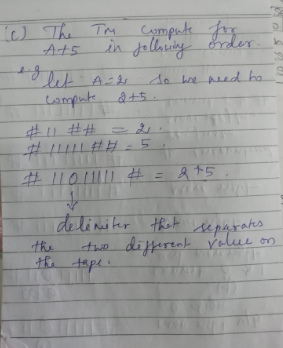 (c) The TM compute for
A+5 in following order.
e.g
let A=2, So we need to
compute 2+5.
# 11 ## = 2.
# 11111 ## = 5.
# 11011111 # = 2+5.
↓
delimiter that separates
the two different value on
the tape.